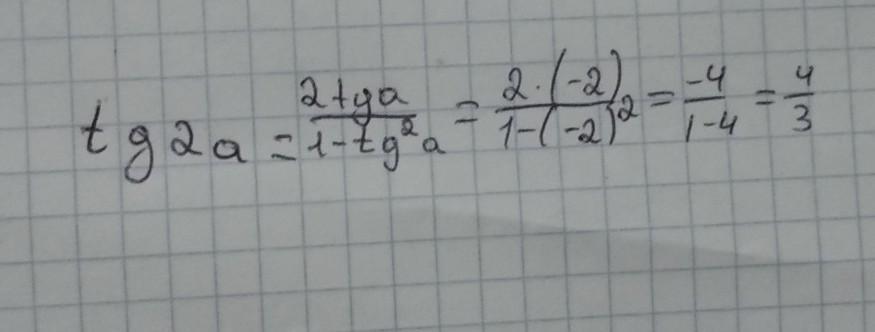 tg2a = 2tga/1-tg²a = 2·(-2)/1-(-2)² = -4/1-4 = 4/3